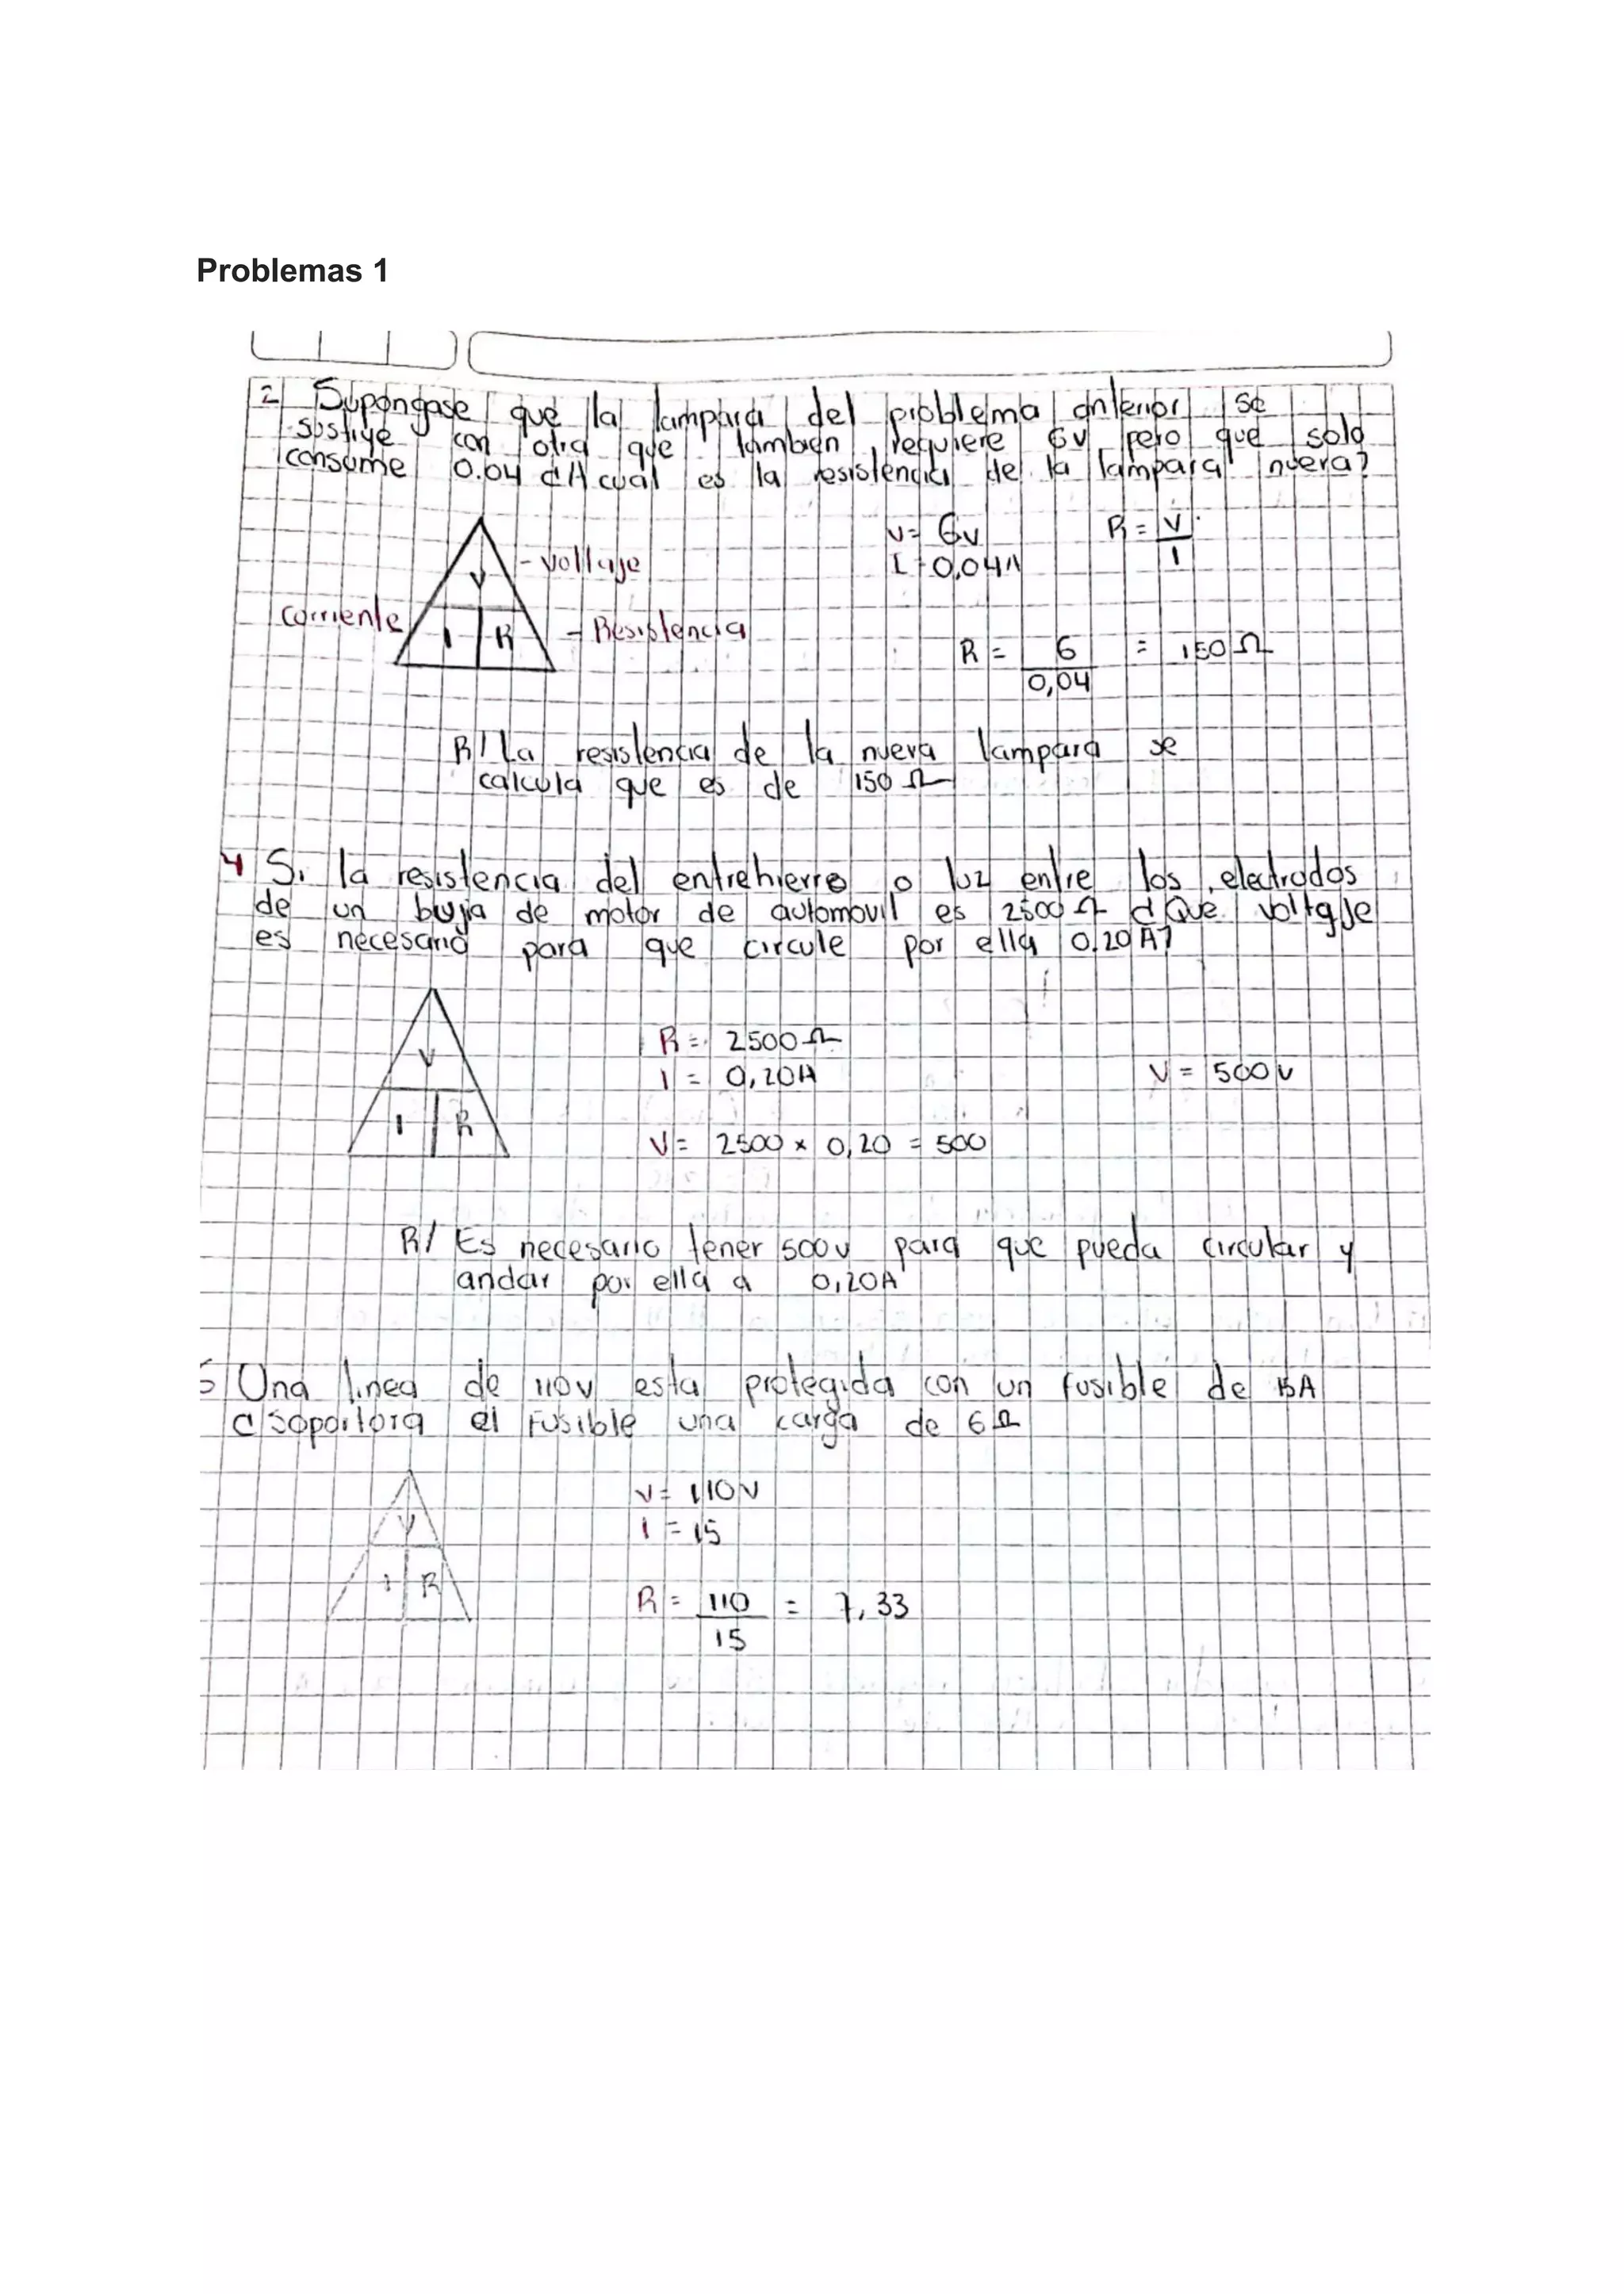 Problemas 1
2) Supóngase que la lampara del problema anterior se
sustiye con otra que tambien requiere 6v pero que solo
consume 0.04 ¿A cual es la resistencia de la lampara nueva?
V= 6v
R= V
I
- voltaje
I=0,04A
corriente
V
I R
- Resistencia
R= 6 = 150Ω
0,04
R/ La resistencia de la nueva lampara se
calcula que es de 150 Ω
4 Si la resistencia del entrehierro o luz entre los electrodos
de un bujia de motor de automovil es 2500 Ω ¿Que voltaje
es necesario para que circule por ella 0.20 A?
V
I R
R= 2500 Ω
I = 0,20A
V = 500 v
V= 2500 x 0,20 = 500
R/ Es necesario tener 500v para que pueda circular y
andar por ella a 0,20A
5 Una linea de 110v esta protegida con un fusible de 15A
¿soportora el fusible una carga de 6Ω
V
I R
V= 110V
I = 15
R= 110 = 7,33
15